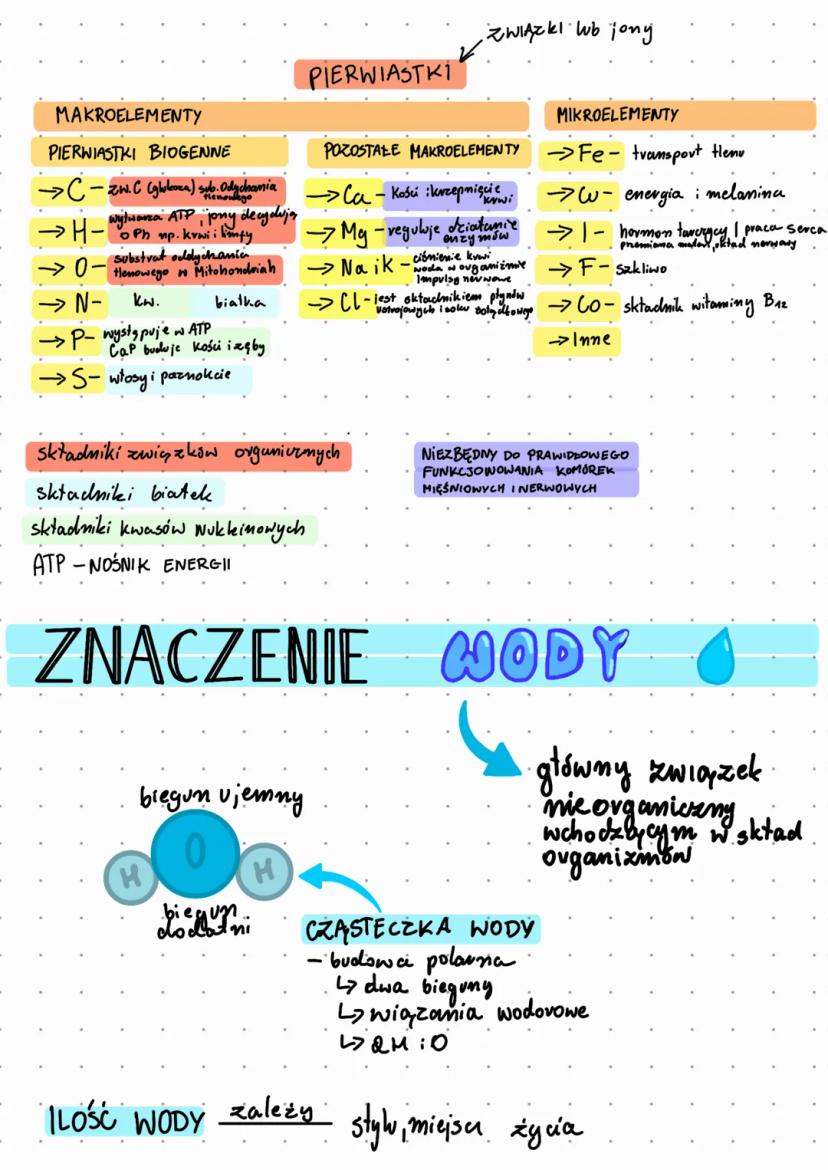 ZWIĄZKI lub jony
PIERWIASTKI
MAKROELEMENTY
MIKROELEMENTY
PIERWIASTKI BIOGENNE
POZOSTAŁE MAKROELEMENTY
→ C - zw. C (glukoza) sub. Oddychania tlenowego
→ H - wytwarza ATP, jony decydują
o Ph np. krwi i limfy
→ O - substrat oddychania
tlenowego w Mitohondriah
→ N - kw. białka
→ P - występuje w ATP
CaP buduje kości i zęby
→ S - włosy i paznokcie
→ Ca - Kości i krzepnięcie
krwi
→ Mg - reguluje działanie
enzymów
→ Na i K - ciśnienie krwi
woda w organizmie
Impulsy nerwowe
→ Cl - jest składnikiem płynów
ustrojowych i soku żołądkowego
→ Fe - transport tlenu
→ Cu - energia i melanina
→ I - hormon tarczycy | praca serca
przemiana mater, układ nerwowy
→ F - szkliwo
→ Co - składnik witaminy B12
→ Inne
składniki związków organicznych
składniki białek
składniki kwasów nukleinowych
ATP – NOŚNIK ENERGII
NIEZBĘDNY DO PRAWIDŁOWEGO
FUNKCJOWOWANIA KOMÓREK
MIĘŚNIOWYCH I NERWOWYCH
ZNACZENIE WODY
główny związek
nieorganiczny
wchodzącym w skład
organizmów
biegun ujemny
H O H
biegun
dodatni
CZĄSTECZKA WODY
- budowa polarna
↳ dwa bieguny
↳ wiązania wodorowe
↳ 2H i O
ILOŚĆ WODY zależy stylu, miejsca życia